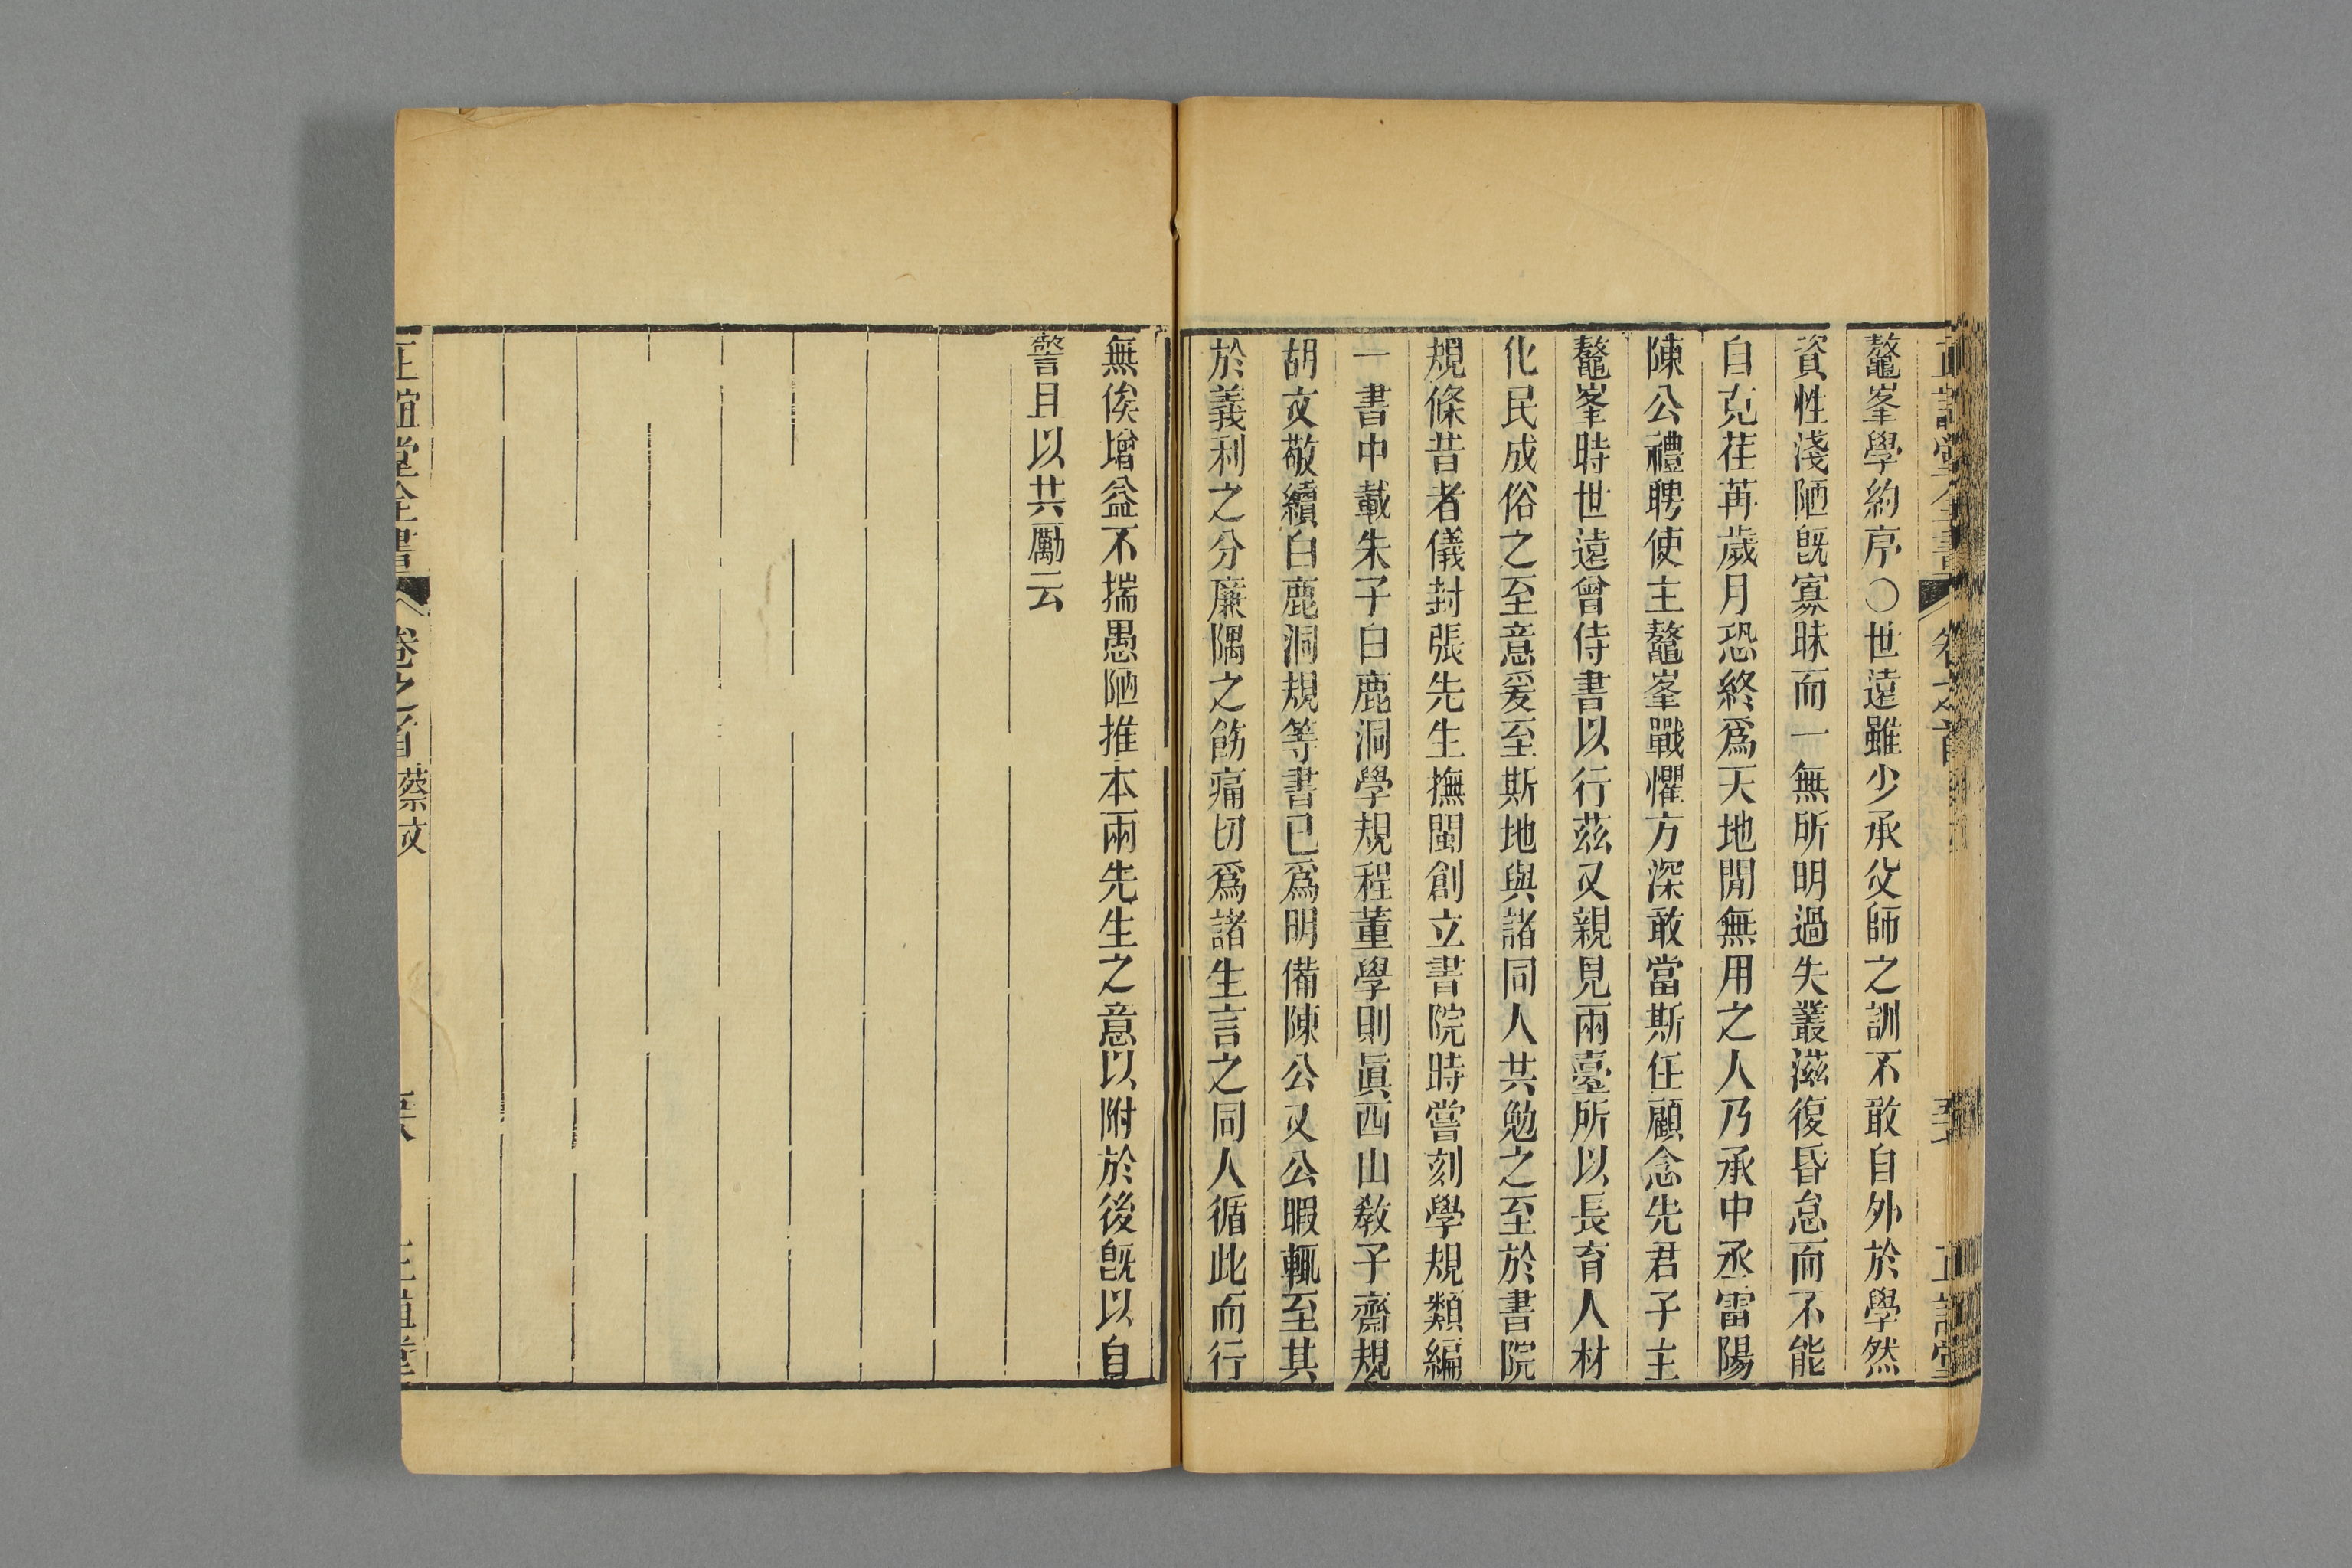 鼇峯學約序○世遠雖少承父師之訓不敢自外於學然
資性淺陋旣寡昧而一無所明過失叢滋復昏怠而不能
自克荏苒歲月恐終爲天地閒無用之人乃承中丞雷陽
陳公禮聘使主鼇峯戰懼方深敢當斯任顧念先君子主
鼇峯時世遠曾侍書以行茲又親見兩臺所以長育人材
化民成俗之至意爰至斯地與諸同人共勉之至於書院
規條昔者儀封張先生撫閩創立書院時嘗刻學規類編
一書中載朱子白鹿洞學規程董學則眞西山敎子齋規
胡文敬續白鹿洞規等書已爲明備陳公又公暇輒至其
於義利之分廉隅之飭痛切爲諸生言之同人循此而行
無俟增益不揣愚陋推本兩先生之意以附於後旣以自
警且以共勵云
正誼堂全書 卷之首 蔡文